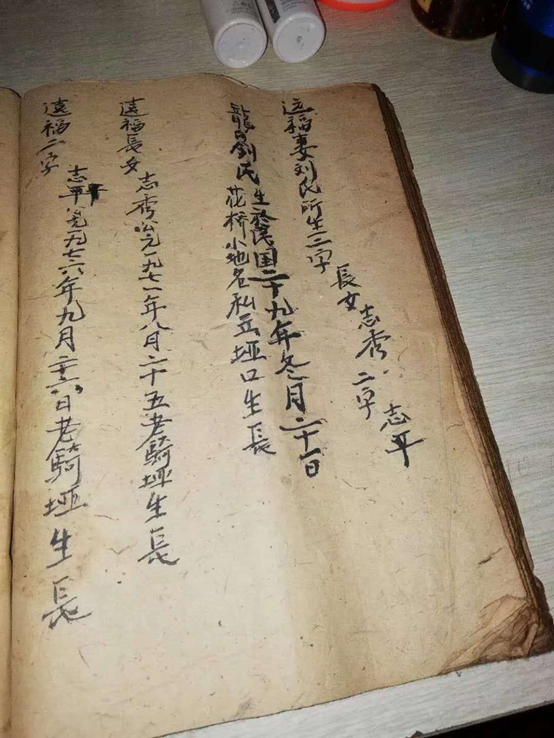 远福妻刘氏所生二字
長女志秀 二字 志平
龍氏劉氏生於民国二十九年冬月二十一日
花桥小地名私立垭口生長
遠福長女 志秀公元一九七一年八月二十五老騎垭生長
遠福二字 志平公元一九七六年九月 日老騎垭生長